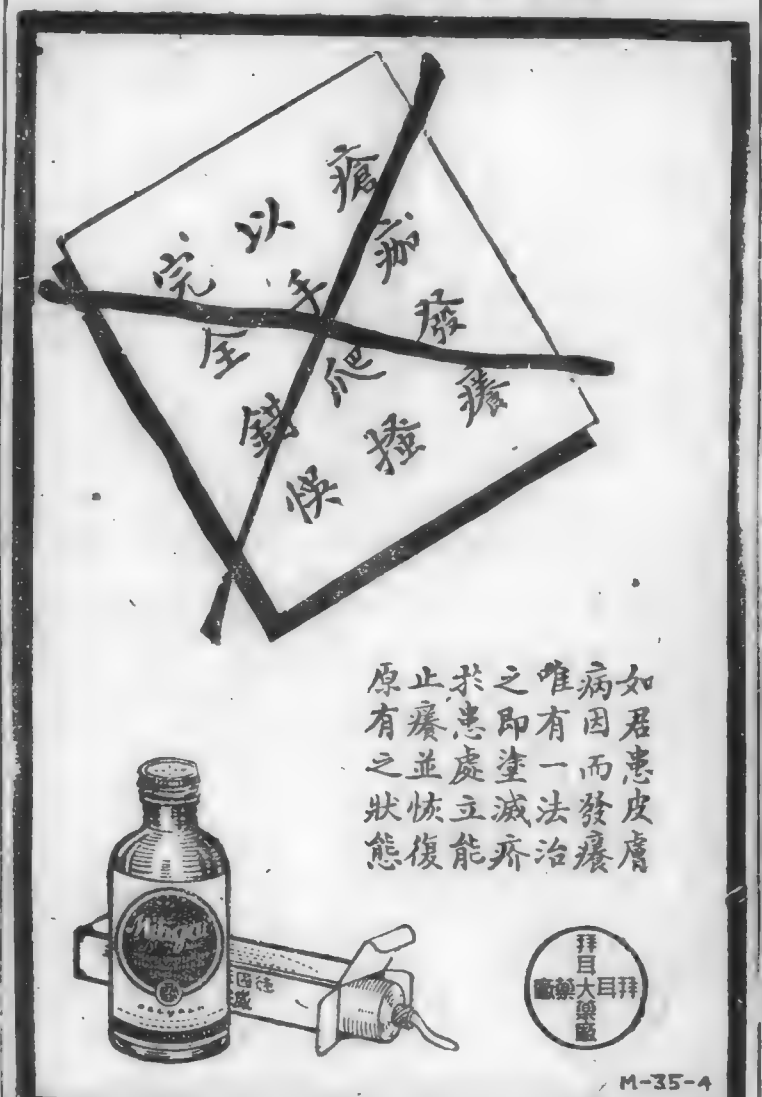 瘡痂發癢
以手爬搔
完全錯悞
如君患皮膚
病因而發癢
唯有一法治
之即塗滅疥
於患處立能
止癢並恢復
原有之狀態
Mitigal
拜耳大藥廠
拜耳大藥廠
M-35-4